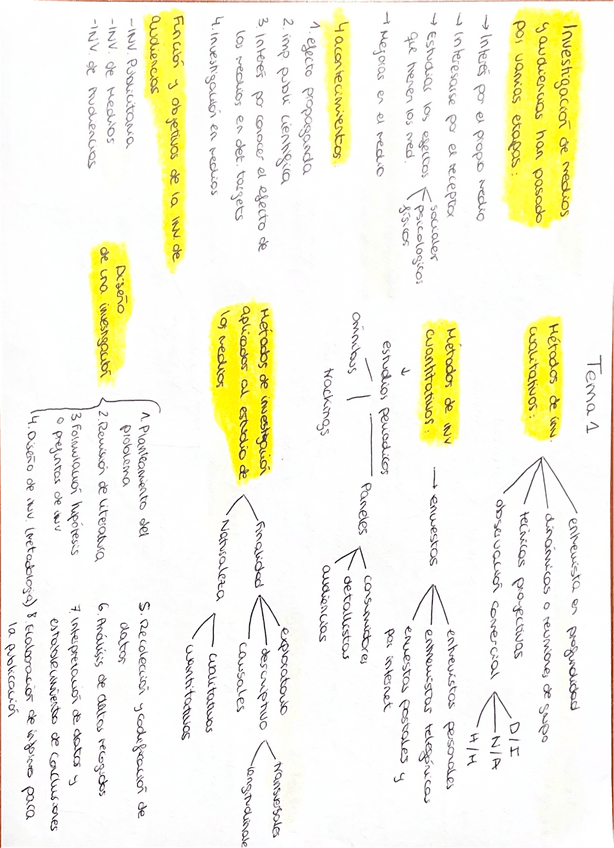 Tema 1
Investigación de medios
y audiencias han pasado
por varias etapas:
→ Interés por el propio medio
→ Interesarse por el receptor
→ Estudiar los efectos
que tienen los med.
sociales
psicológicos
físicos
→ Mejoras en el medio
4 acontecimientos
1. efecto propaganda
2. imp publi científica
3 Interés por conocer el efecto de
los medios en det targets
4. investigación en medios
Función y objetivos de la INV de
audiencias
-INV Publicitaria
-INV. de Medios
-INV de Audiencias
Métodos de inv.
cualitativos:
entrevista en profundidad
dinámicas o reuniones de grupo
técnicas proyectivas
observación comercial
D/I
N/A
H/M
Métodos de INV
cuantitativos:
→ encuestas
entrevistas personales
entrevistas telefónicas
encuestas postales y
por internet
↓
estudios periódicos
ómnibus
trackings
Paneles
consumidores
detallistas
audiencias
Métodos de investigación
aplicados al estudio de
los medios
Finalidad
exploratorio
descriptivo
causales
transversales
longitudinales
Naturaleza
cualitativos
cuantitativos
Diseño
de una investigación
1. Planteamiento del
problema
2. Revisión de literatura
3. Formulación hipótesis
o preguntas de inv
4. Diseño de inv. (metodología)
5. Recolección y codificación de
datos
6. Análisis de datos recogidos
7. Interpretación de datos y
establecimiento de conclusiones
8 Elaboración de informe para
la publicación